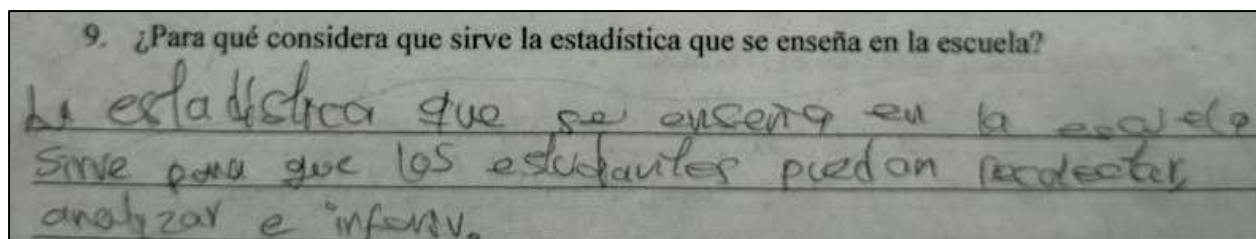 9. ¿Para qué considera que sirve la estadística que se enseña en la escuela?
La estadística que se enseña en la escuela
sirve para que los estudiantes puedan recolectar,
analizar e inferir.